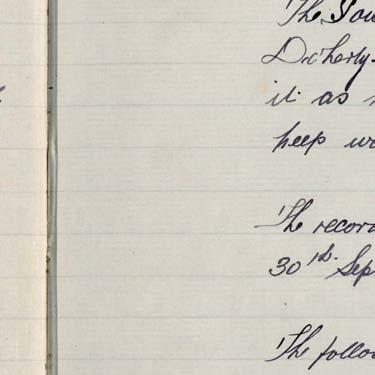 The Tow
Doherty
it as
keep w
The record
30th Sep
The follow